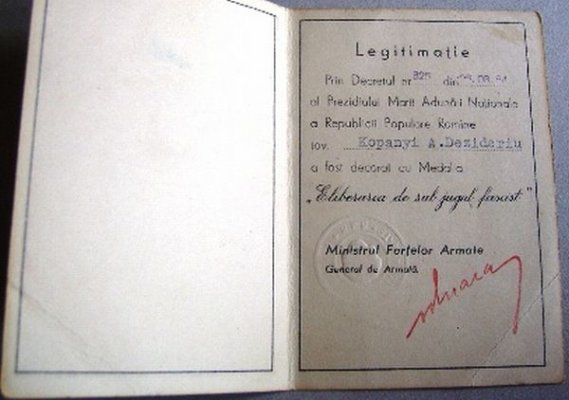 Legitimație
Prin Decretul nr 825 din
al Prezidiului Marii Adunări Naționale
a Republicii Populare Romîne
tov. Kopanyi A.Dezideriu
a fost decorat cu Medalia
„Eliberarea de sub jugul fascist"
Ministrul Forțelor Armate
General de Armată